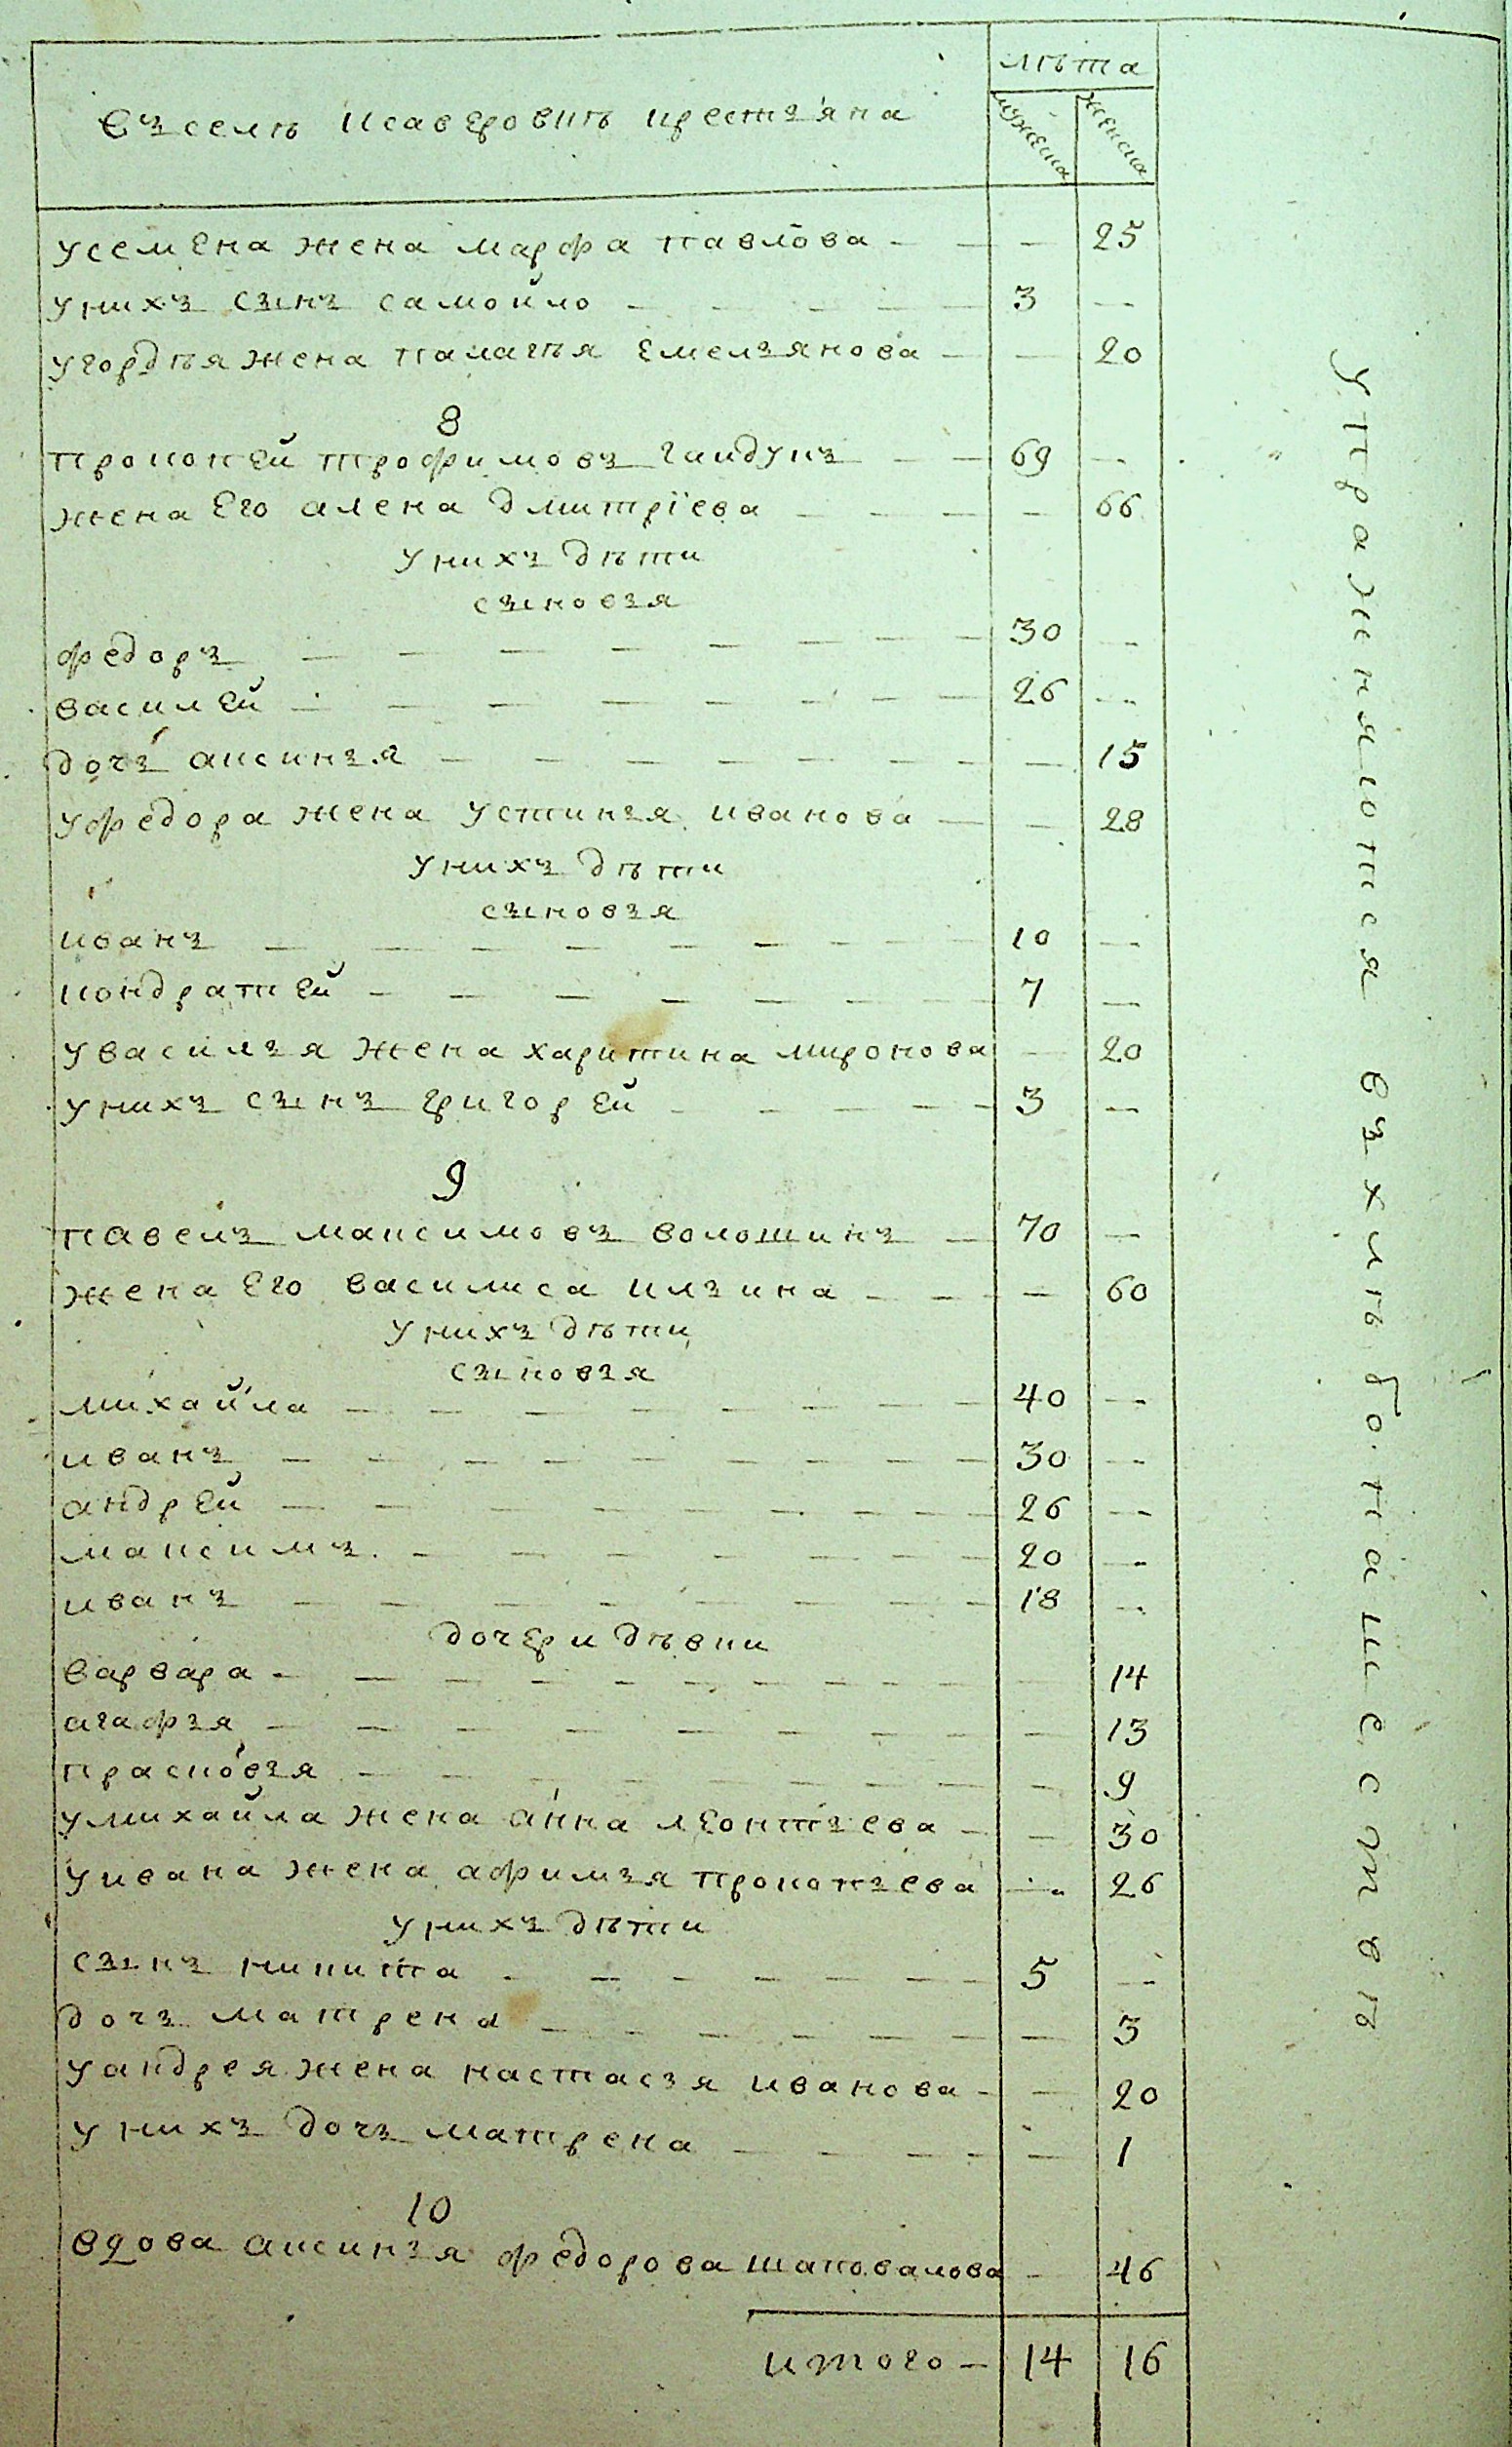 лѣта
въ селѣ каверовкѣ крестьяна
мужеска
женска
усемена жена марфа павлова — — — 25
унихъ сынъ самойло — — — 3 —
угордѣя жена палагѣя емельянова — — 20
8
прокопей трофимовъ гайдукъ — — 69 —
жена его алена дмитрїева — — — — 66
унихъ дѣти
сыновья
федоръ — — — — — — — 30 —
василей — — — — — — — 26 —
дочь аксинья — — — — — — — 15
уфедора жена устинья иванова — — 28
унихъ дѣти
сыновья
иванъ — — — — — — — 10 —
кондратей — — — — — — — 7 —
увасилья жена харитина миронова — 20
унихъ сынъ григорей — — — — 3 —
9
павелъ максимовъ волошинъ — 70 —
жена его василиса ильина — — — 60
унихъ дѣти
сыновья
михайла — — — — — — — 40 —
иванъ — — — — — — — — 30 —
андрей — — — — — — — — 26 —
максимъ — — — — — — — 20 —
иванъ — — — — — — — — 18 —
дочери дѣвки
варвара — — — — — — — — 14
агафья — — — — — — — — 13
прасковья — — — — — — — 9
умихайла жена анна леонтьева — — 30
уивана жена афимья прокопьева — 26
унихъ дѣти
сынъ никита — — — — — — 5 —
дочь матрена — — — — — — 3
уандрея жена настасья иванова — — 20
унихъ дочь матрена — — — — — 1
10
вдова аксинья федорова шаповалова — 46
итого — 14 16
упражняются въ хлѣбопашествѣ